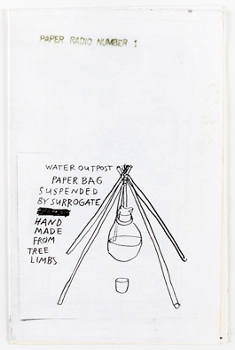 PAPER RADIO NUMBER 1
WATER OUTPOST
PAPER BAG
SUSPENDED
BY SURROGATE
HAND
MADE
FROM
TREE
LIMBS